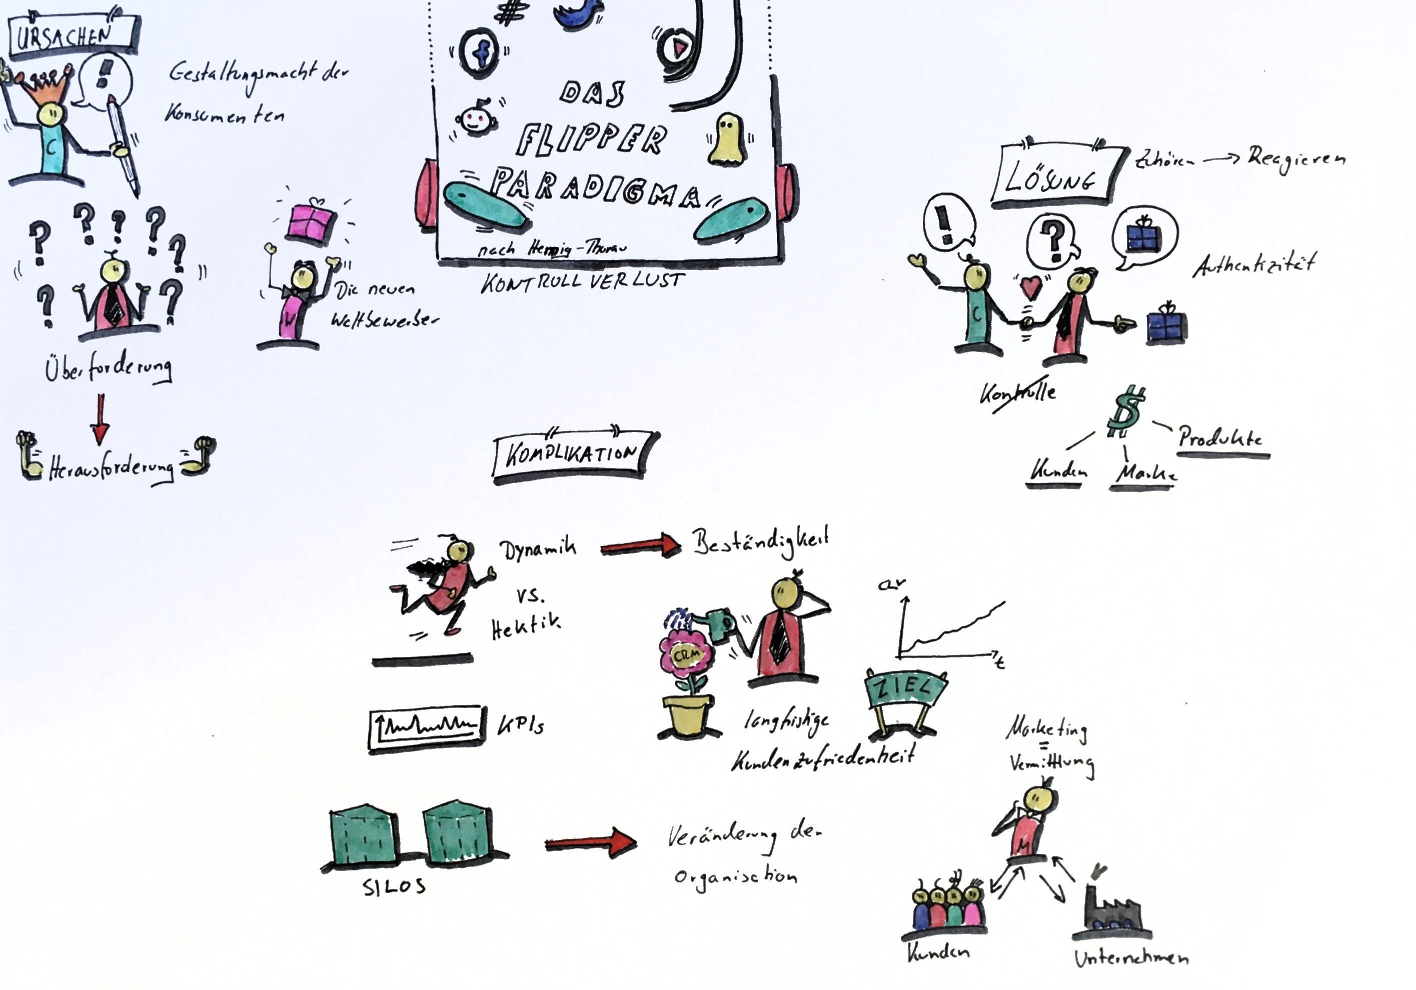 URSACHEN
!
Gestaltungsmacht der
Konsumenten
C
? ? ? ? ? ? ?
Überforderung
Herausforderung
W
Die neuen
Wettbewerber
#
f
DAS
FLIPPER
PARADIGMA
nach Hennig-Thurau
KONTROLLVERLUST
LÖSUNG
Zuhören → Reagieren
! ?
Authentizität
C
Kontrolle
$
Kunden
Marke
Produkte
KOMPLIKATION
Dynamik
vs.
Hektik
Beständigkeit
CRM
CLV
t
ZIEL
langfristige
Kundenzufriedenheit
KPIs
SILOS
Veränderung der
Organisation
Marketing
=
Vermittlung
M
Kunden
Unternehmen